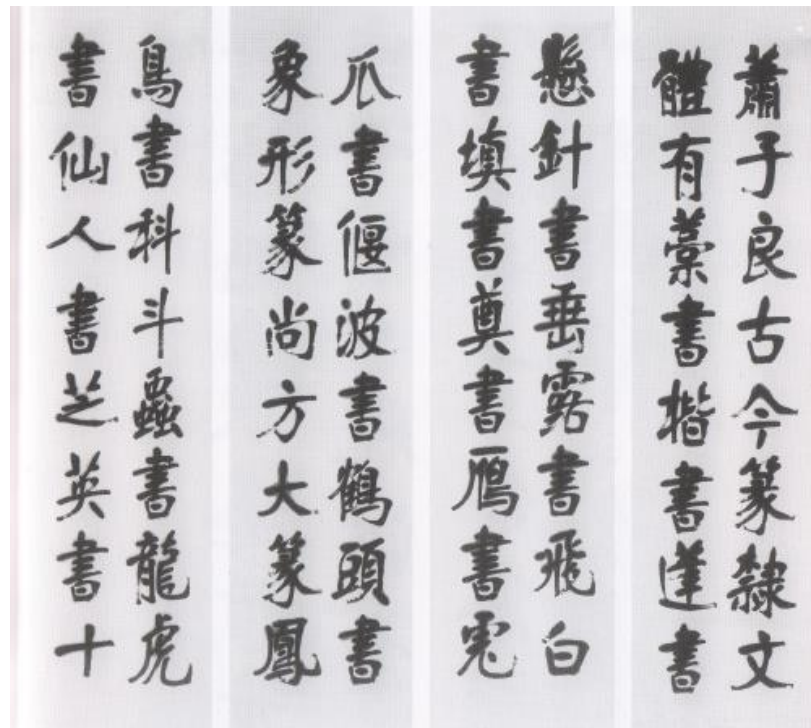 蕭子良古今篆隸文
體有藁書楷書蓬書
懸針書垂露書飛白
書填書奠書鴈書虎
爪書偃波書鶴頭書
象形篆尚方大篆鳳
鳥書科斗蟲書龍虎
書仙人書芝英書十